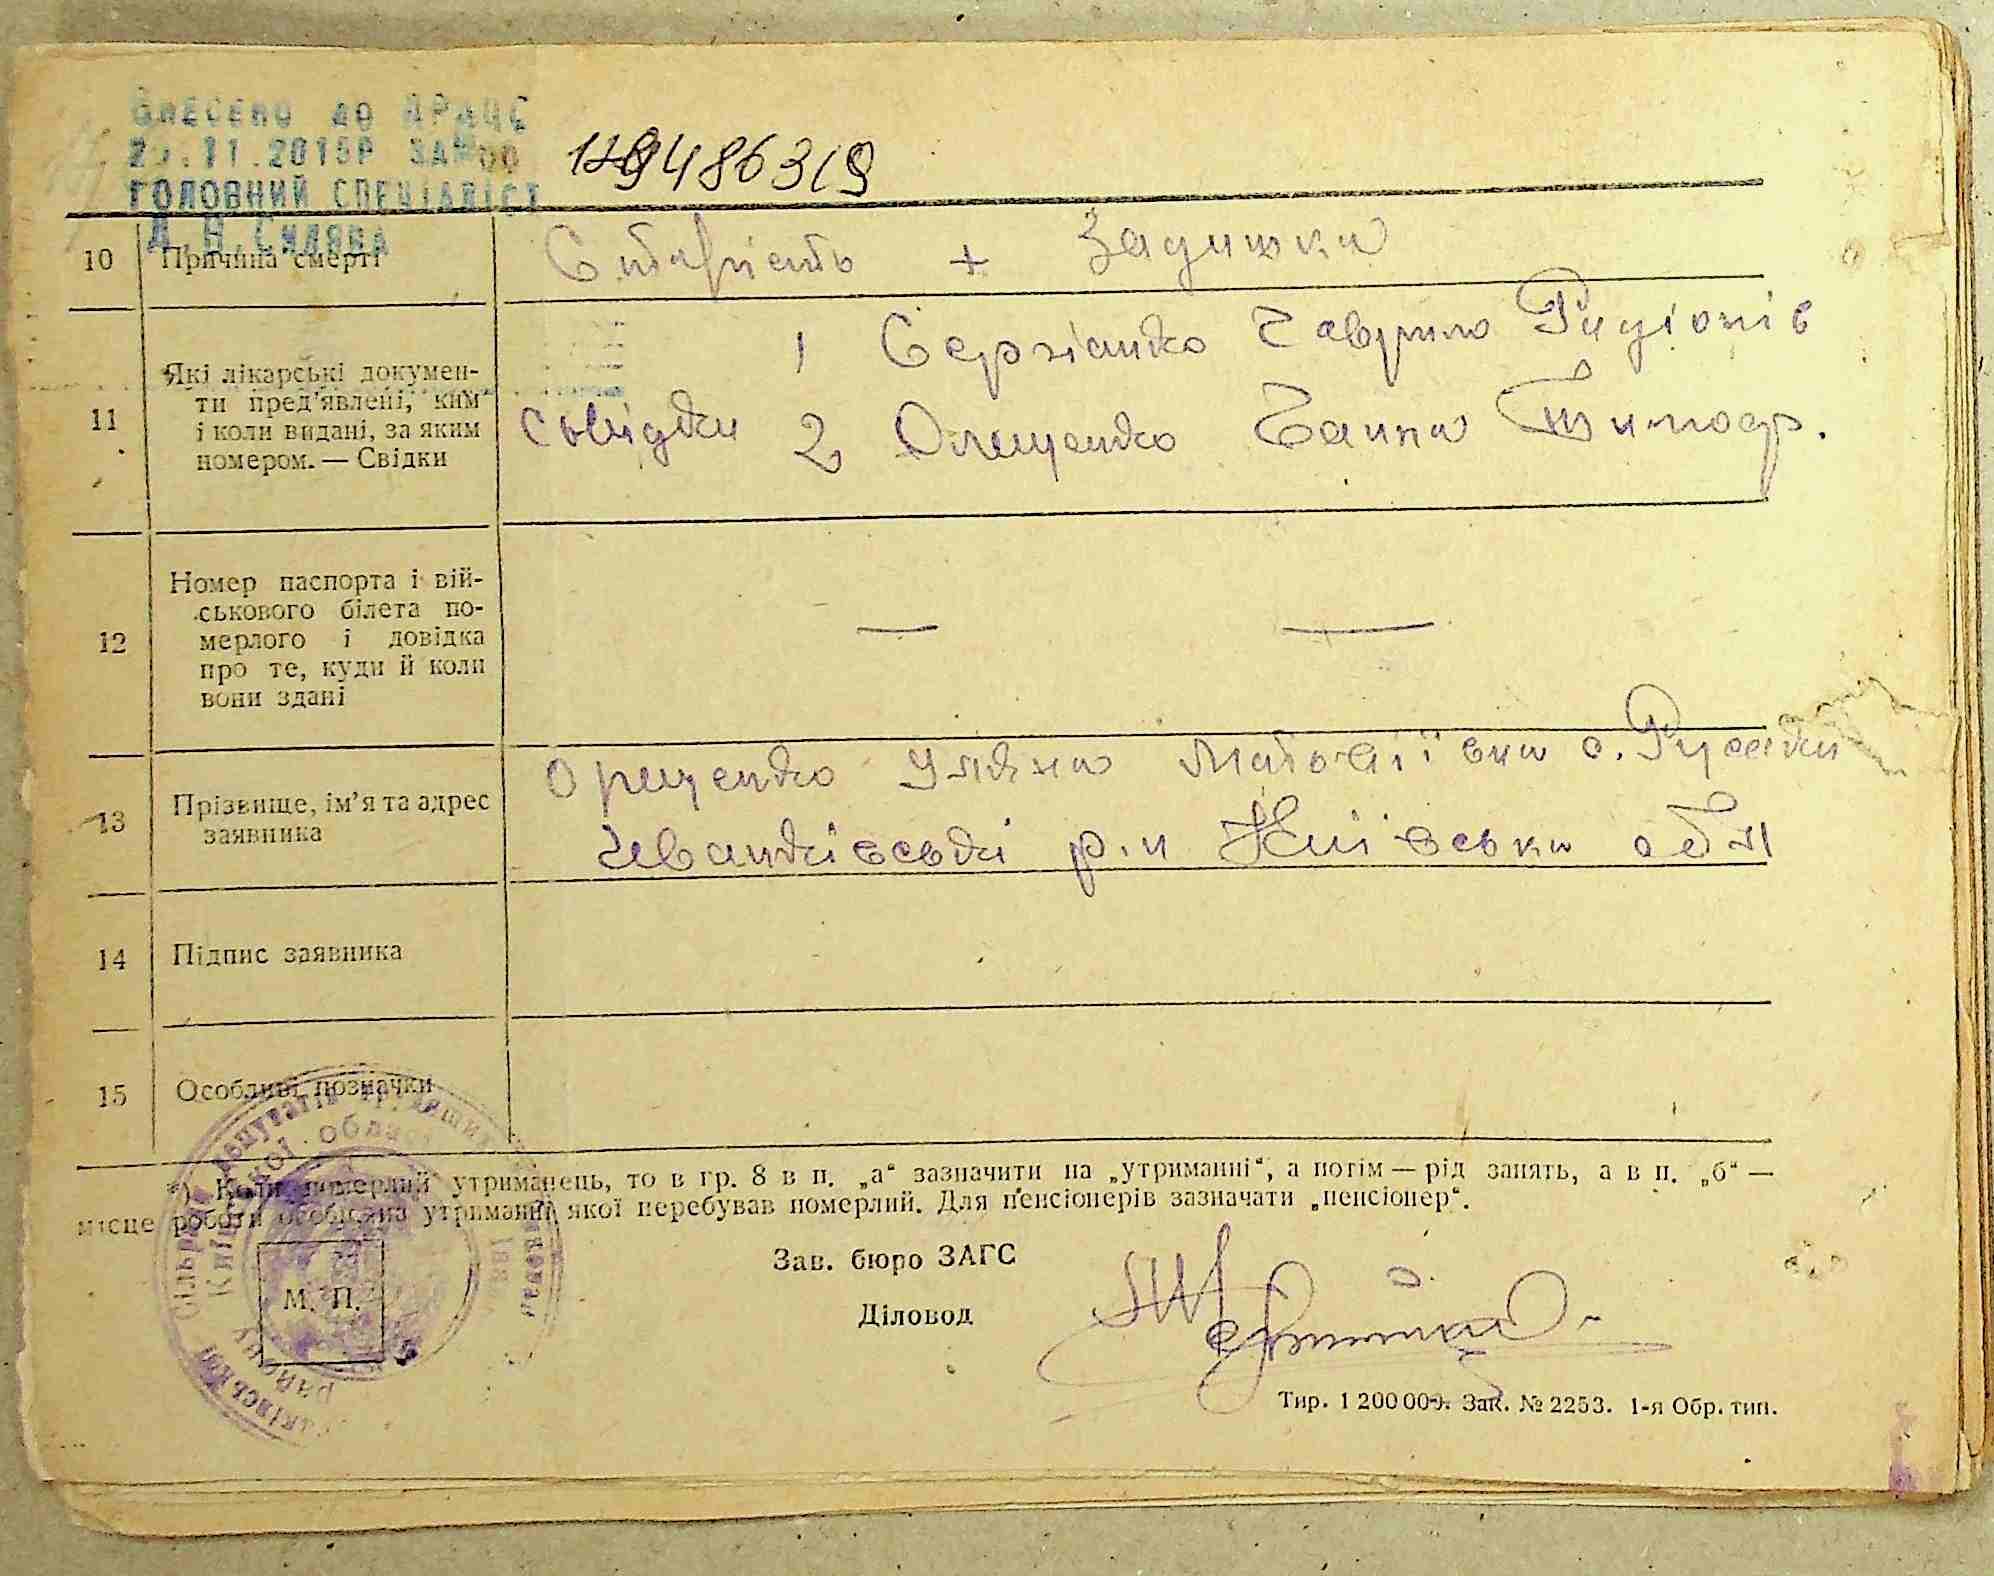 ВНЕСЕНО ДО ДРАЦС
11.2015Р ЗА №00
119486319
ГОЛОВНИЙ СПЕЦІАЛІСТ
10 Причина смерті Старість + Задишка
1 Сергієнко Гаврило
11 Які лікарські докумен-
ти пред'явлені, ким
і коли видані, за яким
номером. — Свідки
свідки 2 Олещенко Ганна Тимоф.
12 Номер паспорта і вій-
ськового білета по-
мерлого і довідка
про те, куди й коли
вони здані
— —
13 Прізвище, ім'я та адрес
заявника
Орищенко Уляна с. Русаки
Іванківські р.н Київська обл
14 Підпис заявника
15 Особливі позначки
*) Коли померлий утриманець, то в гр. 8 в п. „а“ зазначити на „утриманні“, а потім — рід занять, а в п. „б“ —
місце роботи особи, на утриманні якої перебував померлий. Для пенсіонерів зазначати „пенсіонер“.
Зав. бюро ЗАГС
М. П.
Діловод
Тир. 1 200 000. Зак. № 2253. 1-я Обр. тип.